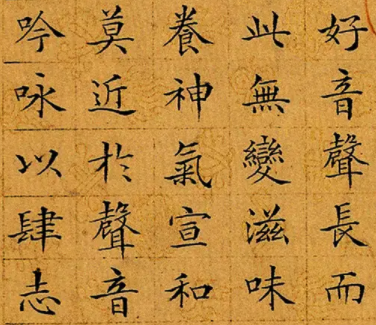 好音聲長而
此無變滋味
養神氣宣和
莫近於聲音
吟咏以肆志